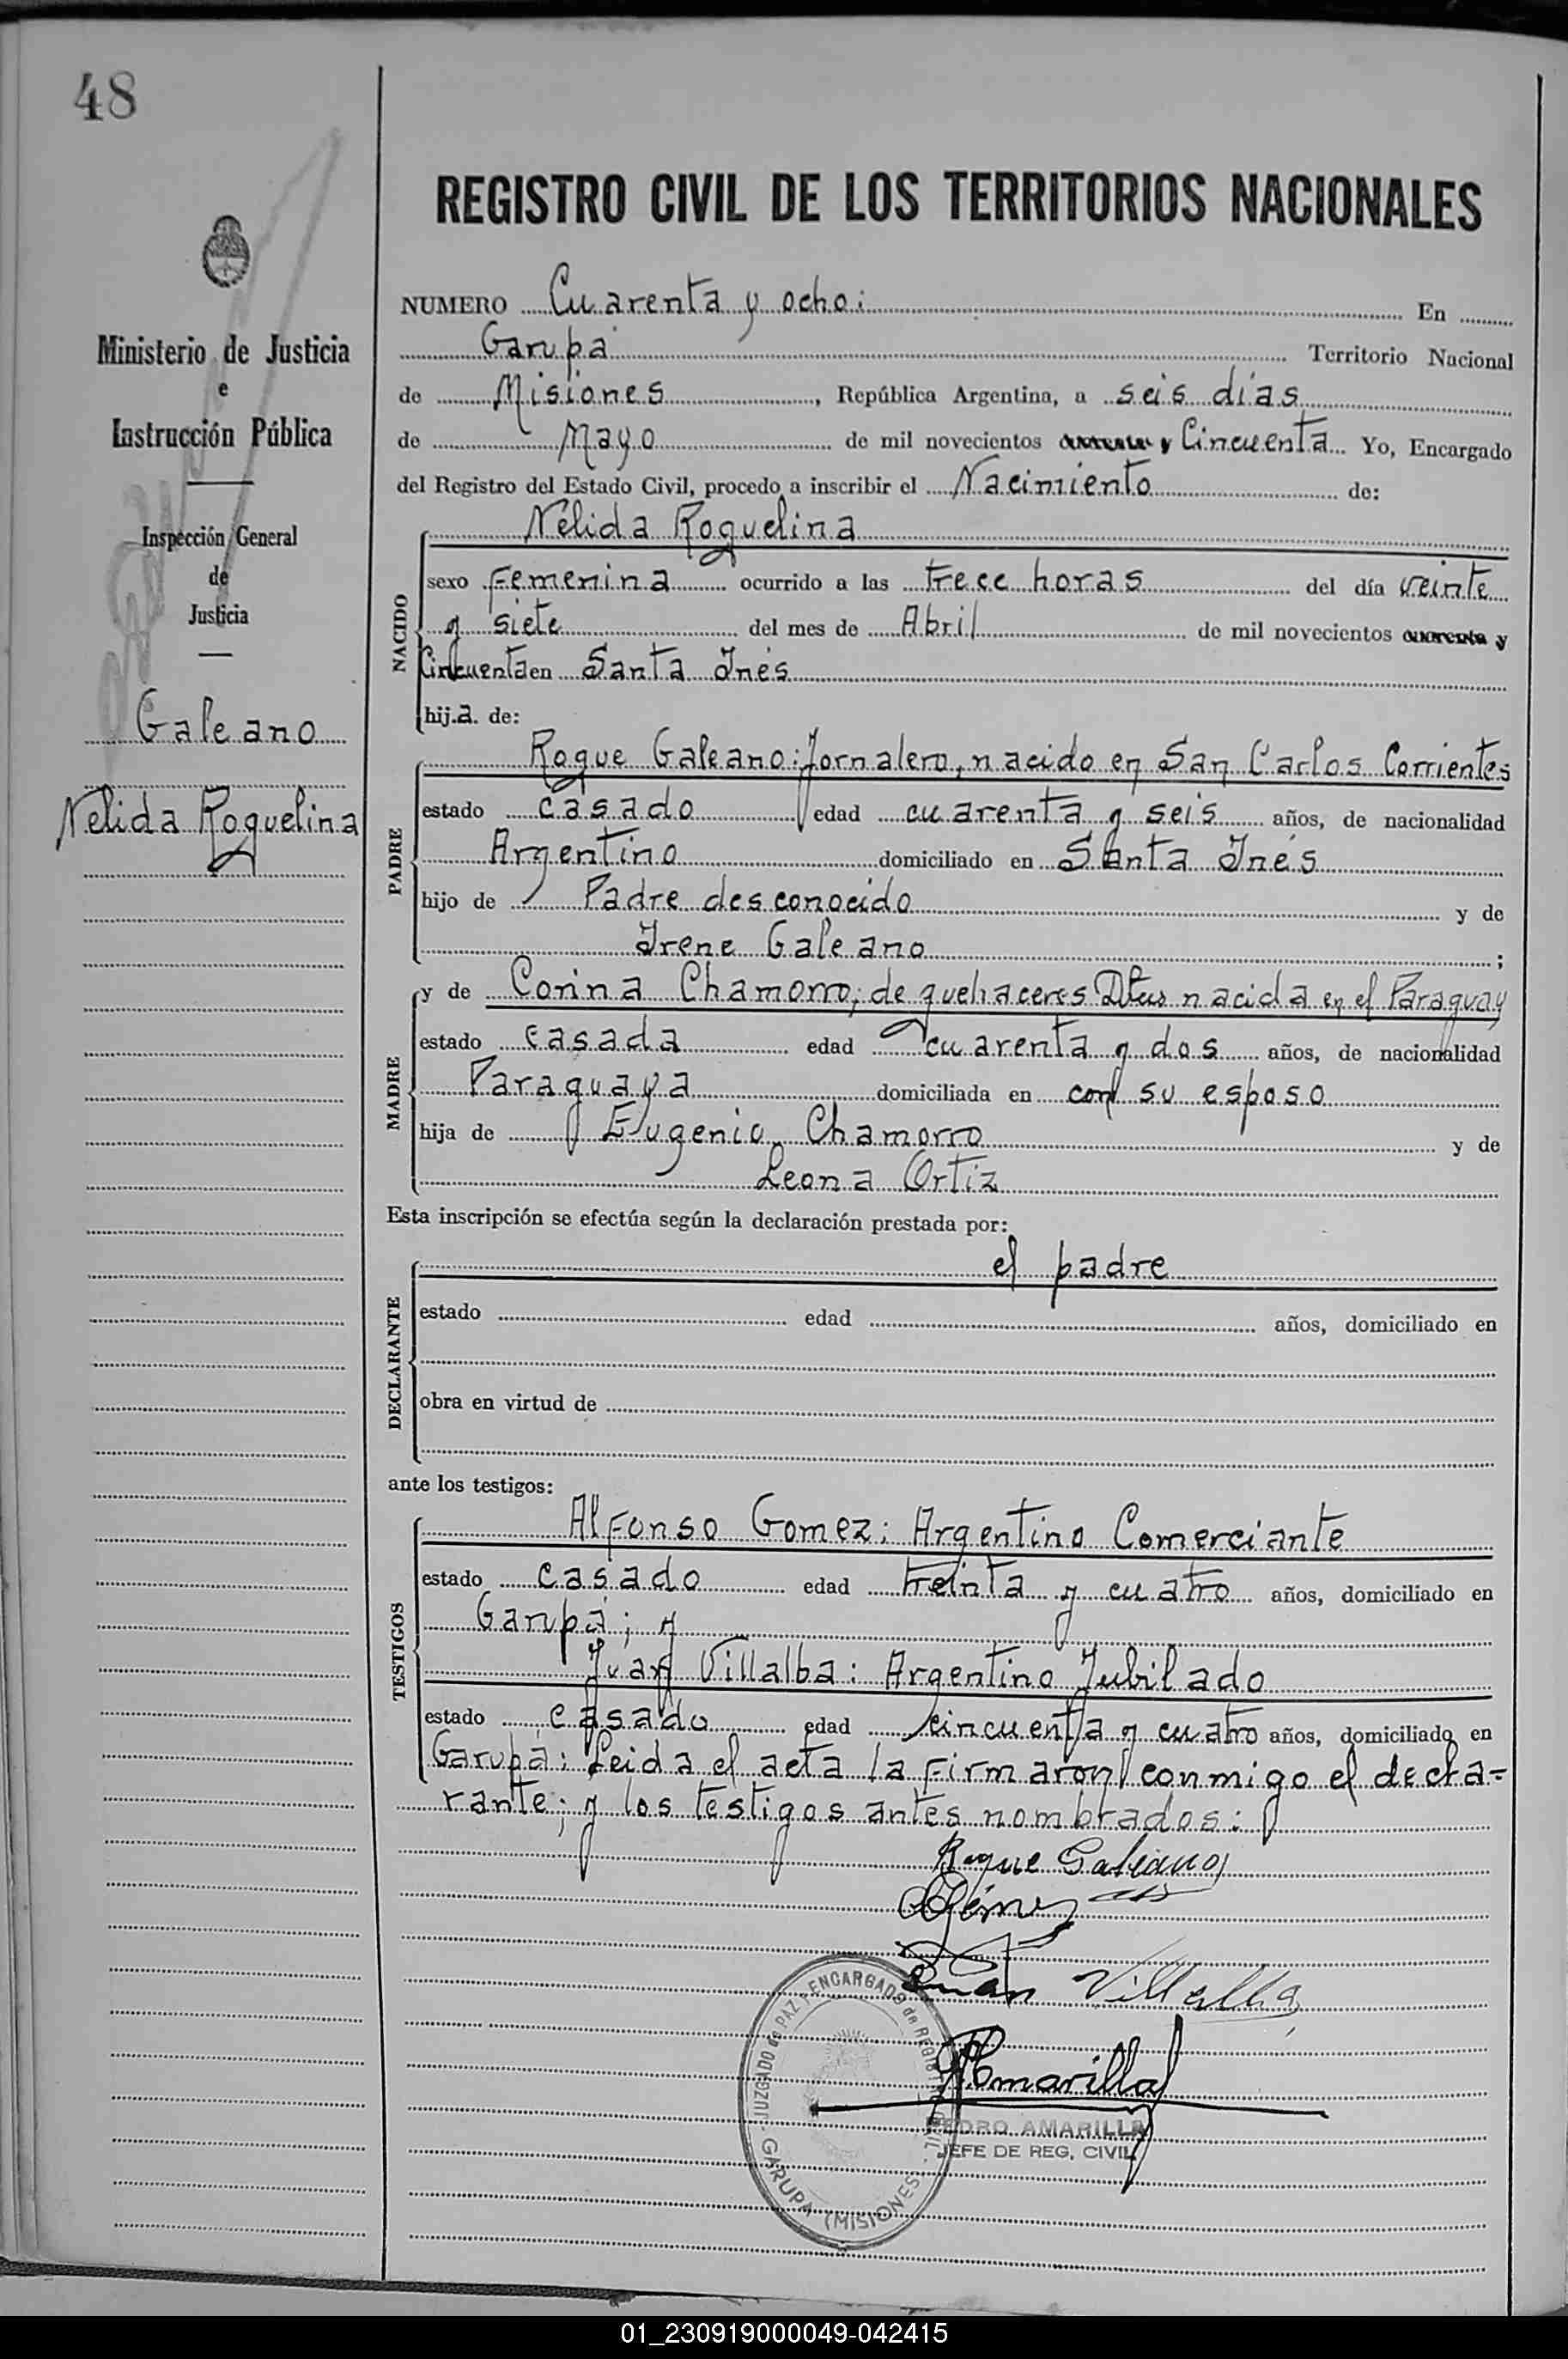 48
REGISTRO CIVIL DE LOS TERRITORIOS NACIONALES
Ministerio de Justicia
e
Instrucción Pública
Inspección General
de
Justicia
Galeano
Nelida Roquelina
NUMERO Cuarenta y ocho: En
Garupá Territorio Nacional
de Misiones, República Argentina, a seis días
de Mayo de mil novecientos cuarenta y Cincuenta Yo, Encargado
del Registro del Estado Civil, procedo a inscribir el Nacimiento de:
NACIDO
Nelida Roquelina
sexo Femenina ocurrido a las trece horas del día veinte
y siete del mes de Abril de mil novecientos cuarenta y
Cincuenta en Santa Inés
hija de:
PADRE
Roque Galeano: Jornalero, nacido en San Carlos Corrientes
estado casado edad cuarenta y seis años, de nacionalidad
Argentino domiciliado en Santa Inés
hijo de Padre desconocido y de
Irene Galeano ;
MADRE
y de Corina Chamorro; de quehaceres Dtcos nacida en el Paraguay
estado casada edad cuarenta y dos años, de nacionalidad
Paraguaya domiciliada en con su esposo
hija de Eugenio Chamorro y de
Leona Ortiz
Esta inscripción se efectúa según la declaración prestada por:
DECLARANTE
el padre
estado edad años, domiciliado en
obra en virtud de
ante los testigos:
TESTIGOS
Alfonso Gomez: Argentino Comerciante
estado casado edad treinta y cuatro años, domiciliado en
Garupá; y
Juan Villalba: Argentino Jubilado
estado casado edad cincuenta y cuatro años, domiciliado en
Garupá: Leida el acta la firmaron conmigo el decla-
rante; y los testigos antes nombrados:
Roque Galeano
Gómez
Juan Villalba
PAmarilla
JUZGADO de PAZ y ENCARGADO de REGISTRO CIVIL
GARUPA (MISIONES)
PEDRO AMARILLA
JEFE DE REG. CIVIL
01_230919000049-042415